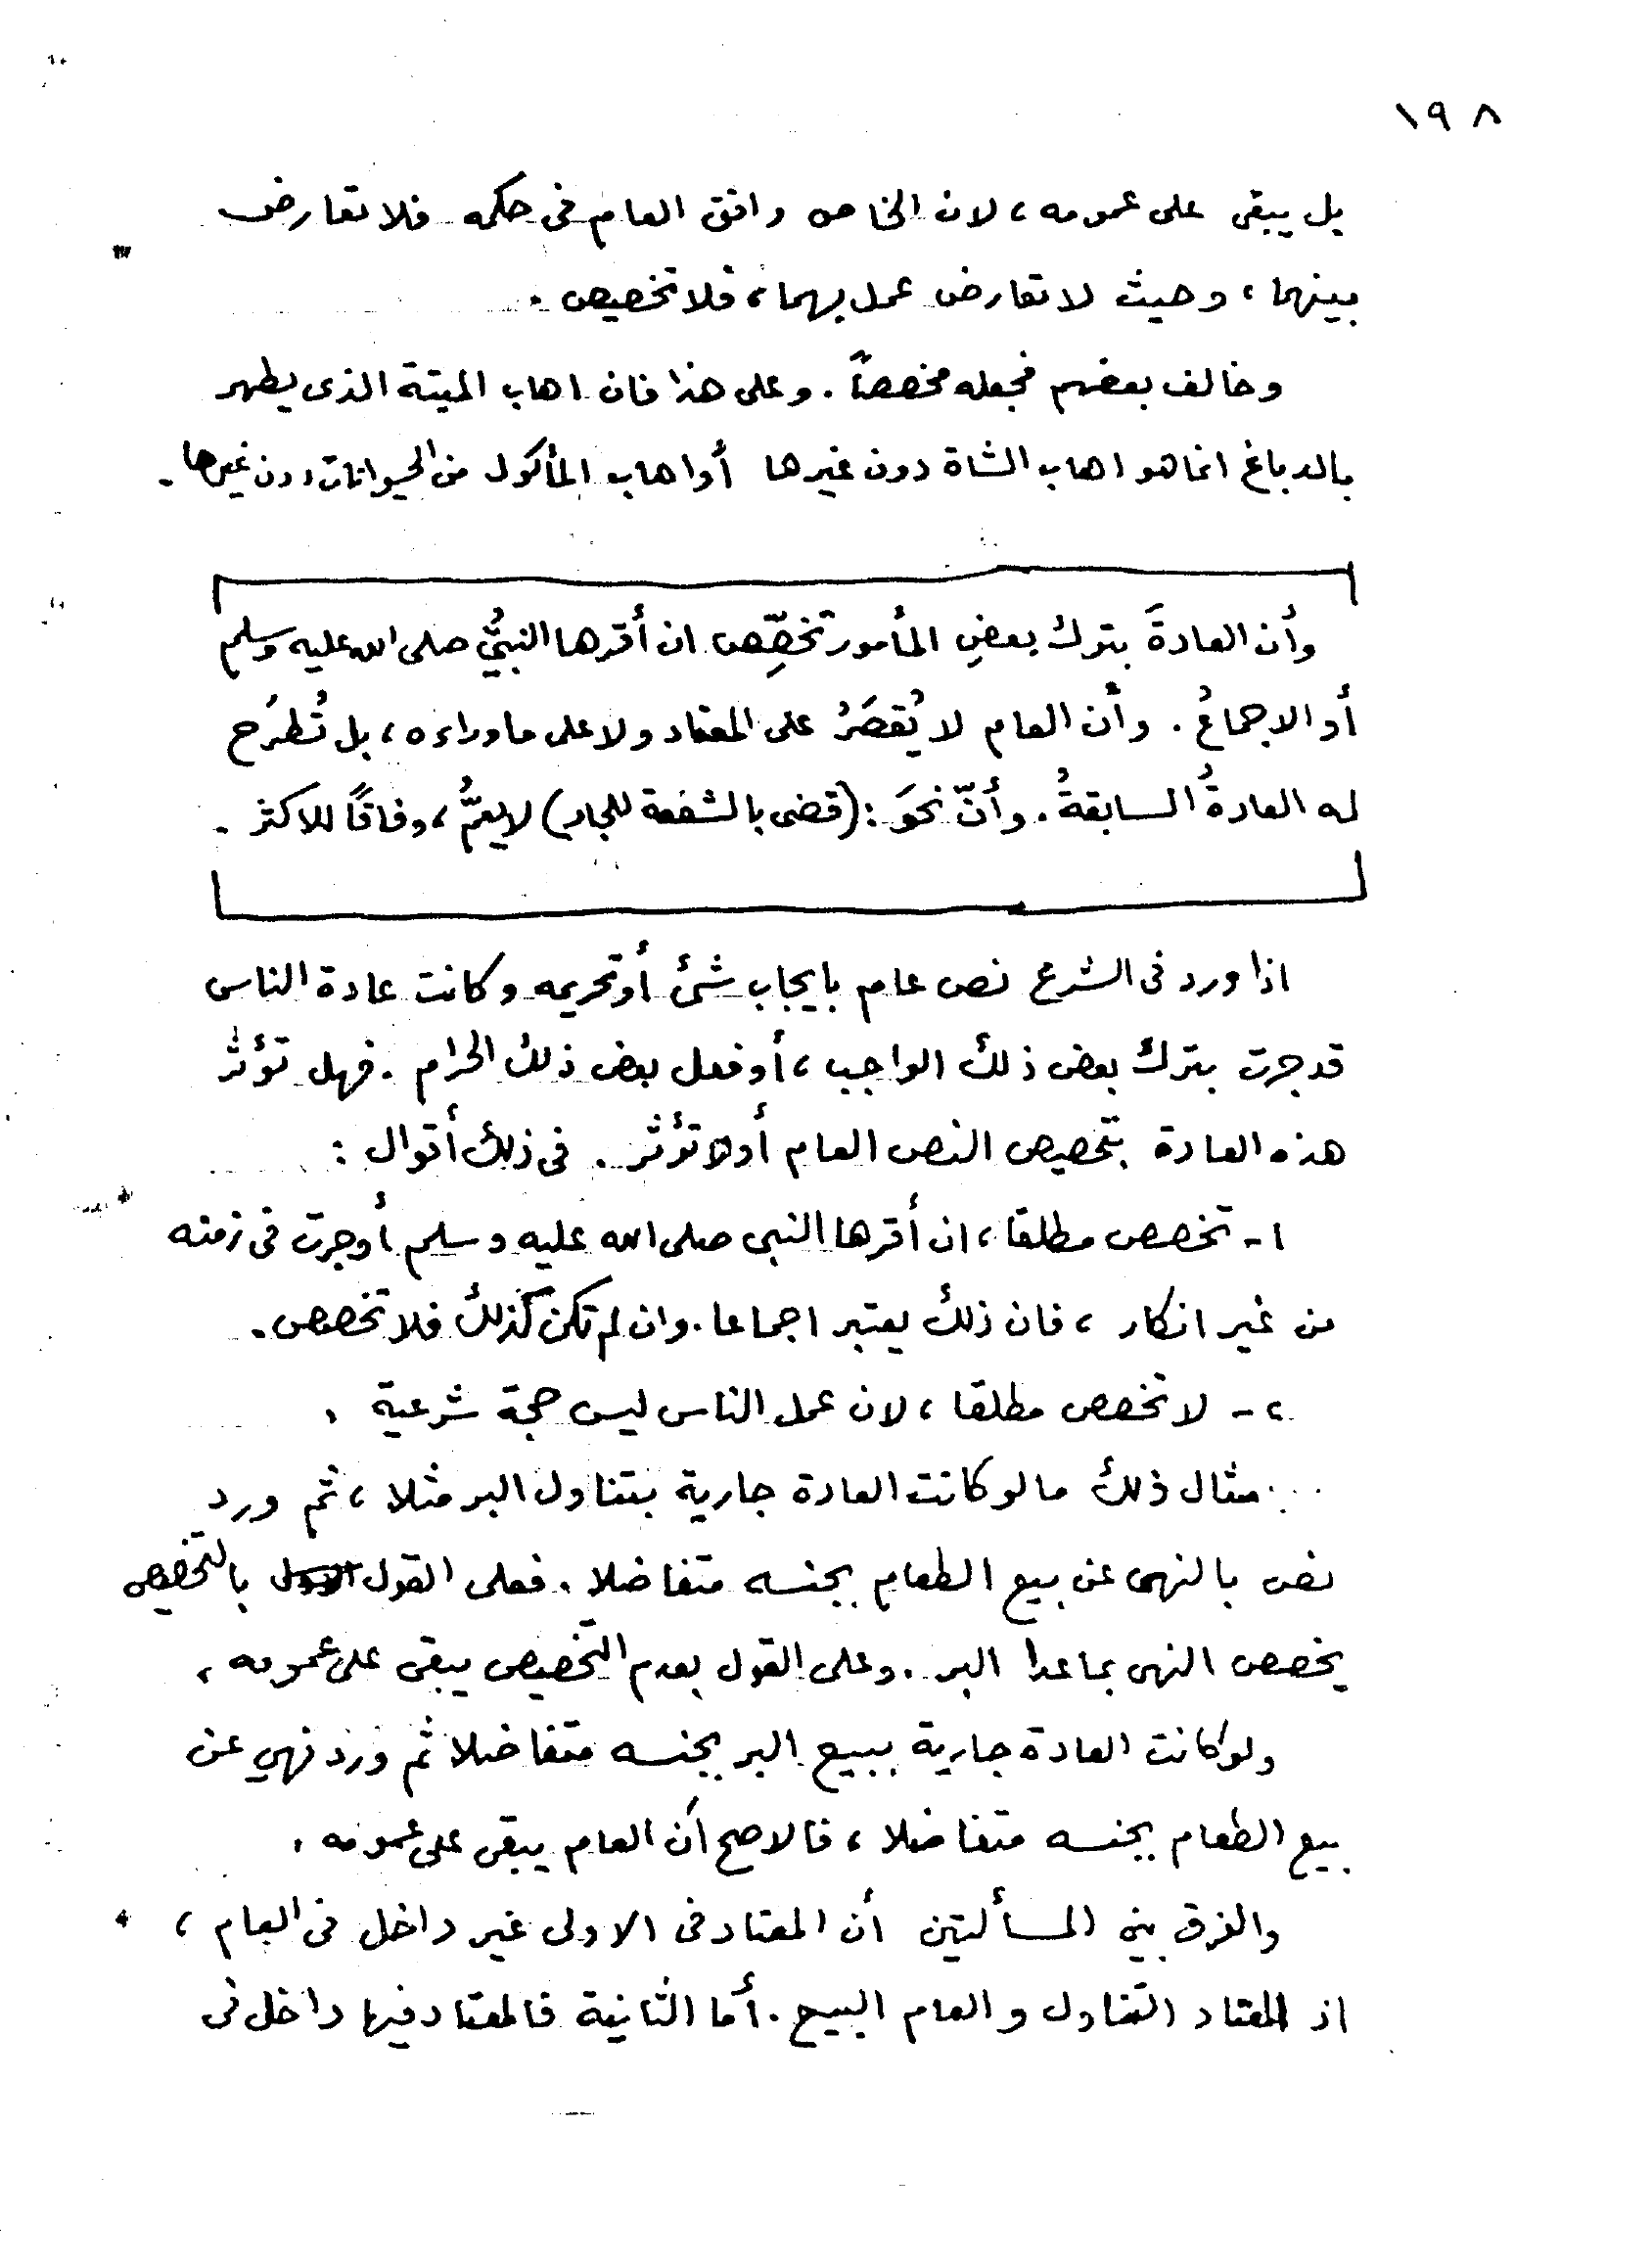 ١٩٨
بل يبقى على عمومه، لان الخاص وافق العام فى حكمه فلا تعارض
بينهما، وحيث لا تعارض عمل بهما، فلا تخصيص.
وخالف بعضهم فجعله مخصصاً. وعلى هذا فان اهاب الميتة الذى يطهر
بالدباغ انما هو اهاب الشاة دون غيرها أو اهاب المأكول من الحيوانات دون غيرها.
وأن العادةَ بتركِ بعضِ المأمور تخصِّص ان أقرها النبيُّ صلى الله عليه وسلم
أو الاجماعُ. وأن العام لا يُقصَرُ على المعتاد ولا على ما وراءه، بل تُطرَح
له العادةُ السابقةُ. وأنّ نحوَ: (قضى بالشفعة للجار) لا يعمُّ، وفاقًا للاكثر.
اذا ورد فى الشرع نص عام بايجاب شئ أو تحريمه وكانت عادة الناس
قد جرت بترك بعض ذلك الواجب، أو فعل بعض ذلك الحرام. فهل تؤثر
هذه العادة بتخصيص النص العام أو لا تؤثر. فى ذلك أقوال:
١- تخصص مطلقا، ان أقرها النبى صلى الله عليه وسلم أو جرت فى زمنه
من غير انكار، فان ذلك يعتبر اجماعا. وان لم تكن كذلك فلا تخصص.
٢- لا تخصص مطلقا، لان عمل الناس ليس حجة شرعية.
مثال ذلك ما لو كانت العادة جارية بتناول البر مثلا، ثم ورد
نص بالنهى عن بيع الطعام بجنسه متفاضلا. فعلى القول بالتخصيص
يخصص النهى بما عدا البر. وعلى القول بعدم التخصيص يبقى على عمومه.
ولو كانت العادة جارية ببيع البر بجنسه متفاضلا ثم ورد نهي عن
بيع الطعام بجنسه متفاضلا، فالاصح أن العام يبقى على عمومه.
والفرق بين المسألتين أن المعتاد فى الاولى غير داخل فى العام،
اذ المعتاد التناول والعام البيع. أما الثانية فالمعتاد فيها داخل فى